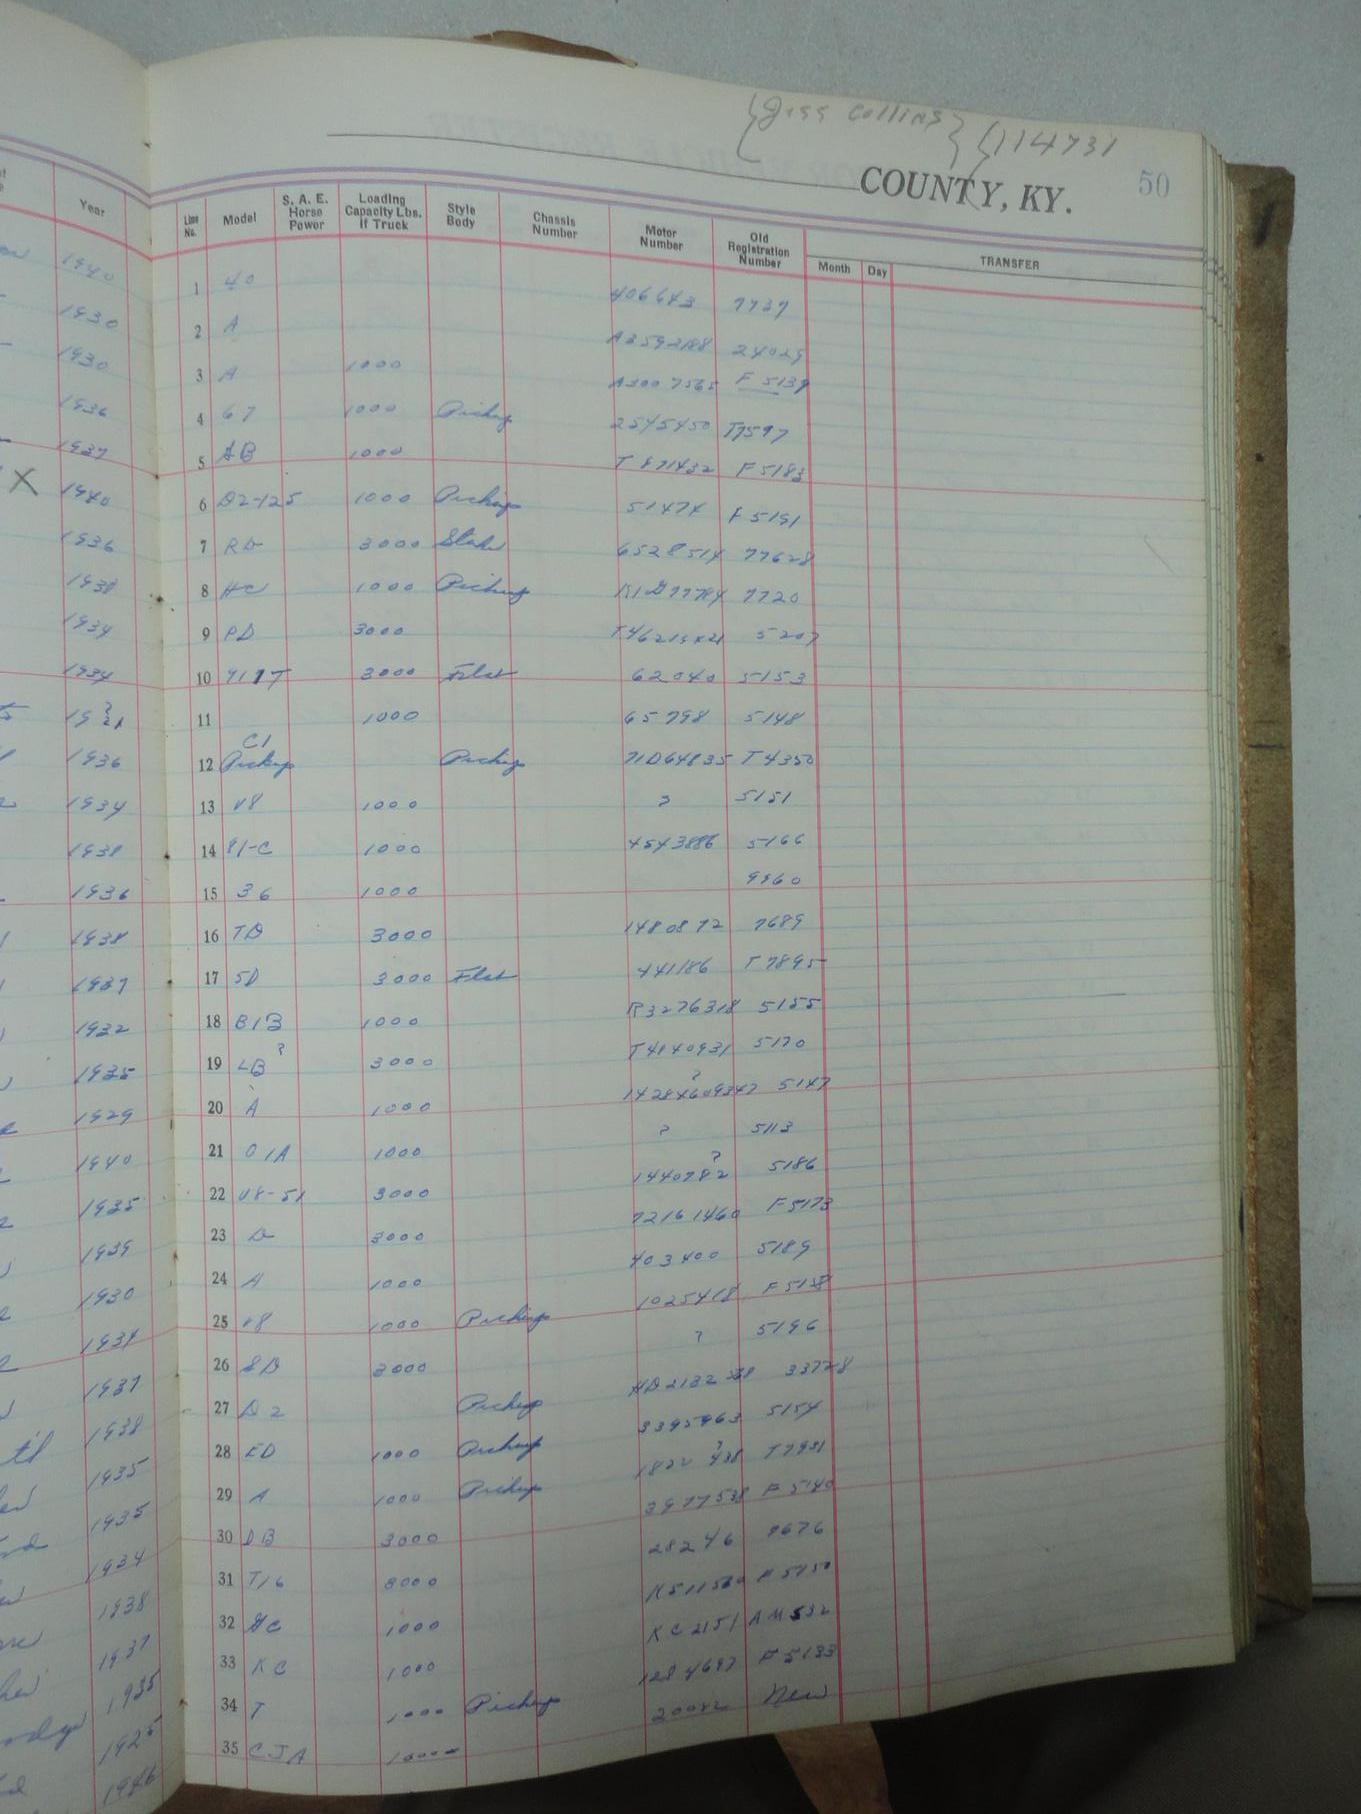 Jess Collins 114731
COUNTY, KY. 50
Year
Line No. Model S. A. E. Horse Power Loading Capacity Lbs. if Truck Style Body Chassis Number Motor Number Old Registration Number TRANSFER Month Day
1940 1 40 406643 7737
1930 2 A A3592188 24029
1930 3 A 1000 A3007565 F 5139
1936 4 67 1000 Pickup 2545450 T7597
1937 5 AB 1000 T871432 F 5183
X 1940 6 D2-125 1000 Pickup 51474 F 5191
1936 7 RD 3000 Stake 6528514 77628
1938 8 HC 1000 Pickup 7720
1934 9 PD 3000 5207
1934 10 911T 3000 Flat 62040 5153
11 1000 65798 5148
1936 12 C1 Pickup Pickup 71D64835 T4350
1934 13 V8 1000 ? 5151
1938 14 81-C 1000 4543886 5166
1936 15 36 1000 9960
1938 16 TD 3000 1480872 7689
1937 17 5D 3000 Flat 441186 T7895
1932 18 B1B 1000 R3276318 5155
1935 19 LB ? 3000 T4140931 5170
1929 20 A 1000 5147
1940 21 01A 1000 ? 5113
1935 22 V8-51 3000 1440782 ? 5186
1939 23 D 3000 72161460 F5173
1930 24 A 1000 403400 5189
1934 25 V8 1000 Pickup 1025418 F 5138
1937 26 SD 3000 ? 5196
1938 27 D2 Pickup 33728
1935 28 ED 1000 Pickup 3395963 5154
1935 29 A 1000 Pickup T7931
1934 30 DB 3000 3977538 F 5140
1938 31 T16 8000 28246 7676
1937 32 HC 1000 K511580
1935 33 KC 1000 KC2151
1925 34 T 1000 Pickup 1284697 F 5133
1946 35 CJA 1000 20082 New